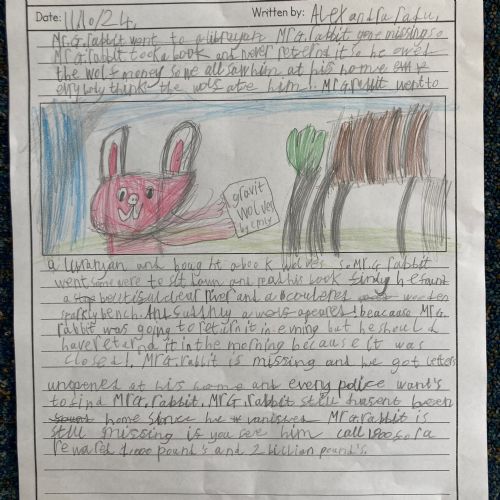 Date: 11/10/24,
Written by: Alexandra
Mr.G.rabbit went to a Mr.G.rabbit gone missing.
Mr.G.rabbit took a book and never reternd it so he
the wolf money so we all saw him at his home
think the wolfs ate him. Mr.G.rabbit went to
gravit
wolves
by emily
a and bought a book wolves so Mr.G rabbit
went some were to sit down and read his book he found
a clear river and a wooden
bench. And a wolf apeares beacause Mr.G
rabbit was going to return it in evning but he should
have reternd it in the morning because it was
closed. Mr.G.rabbit is missing and we got letters
unopened at his home and every police want's
to find Mr.G.rabbit. Mr.G.rabbit still hasent been
home since he vanished Mr.G.rabbit is
still missing is you see him call for a
reward 1,000 pound's and 2 billion pound's